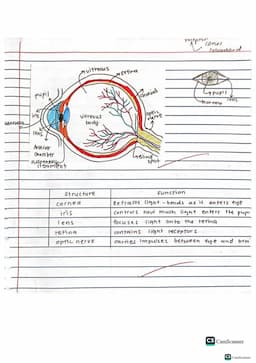 cornea
pupil
iris
vitreous
retina
choroid
pupil
iris
optic
nerve
vitreous
body
lens
blind
spot
Structure Function
cornea Refracts light - bends as it enters eye
iris controls how much light enters the pupi
lens focuses light onto the retina
retina contains light receptors
optic nerve carries impulses between eye and brai
CS CamScanner
CS CamScanner